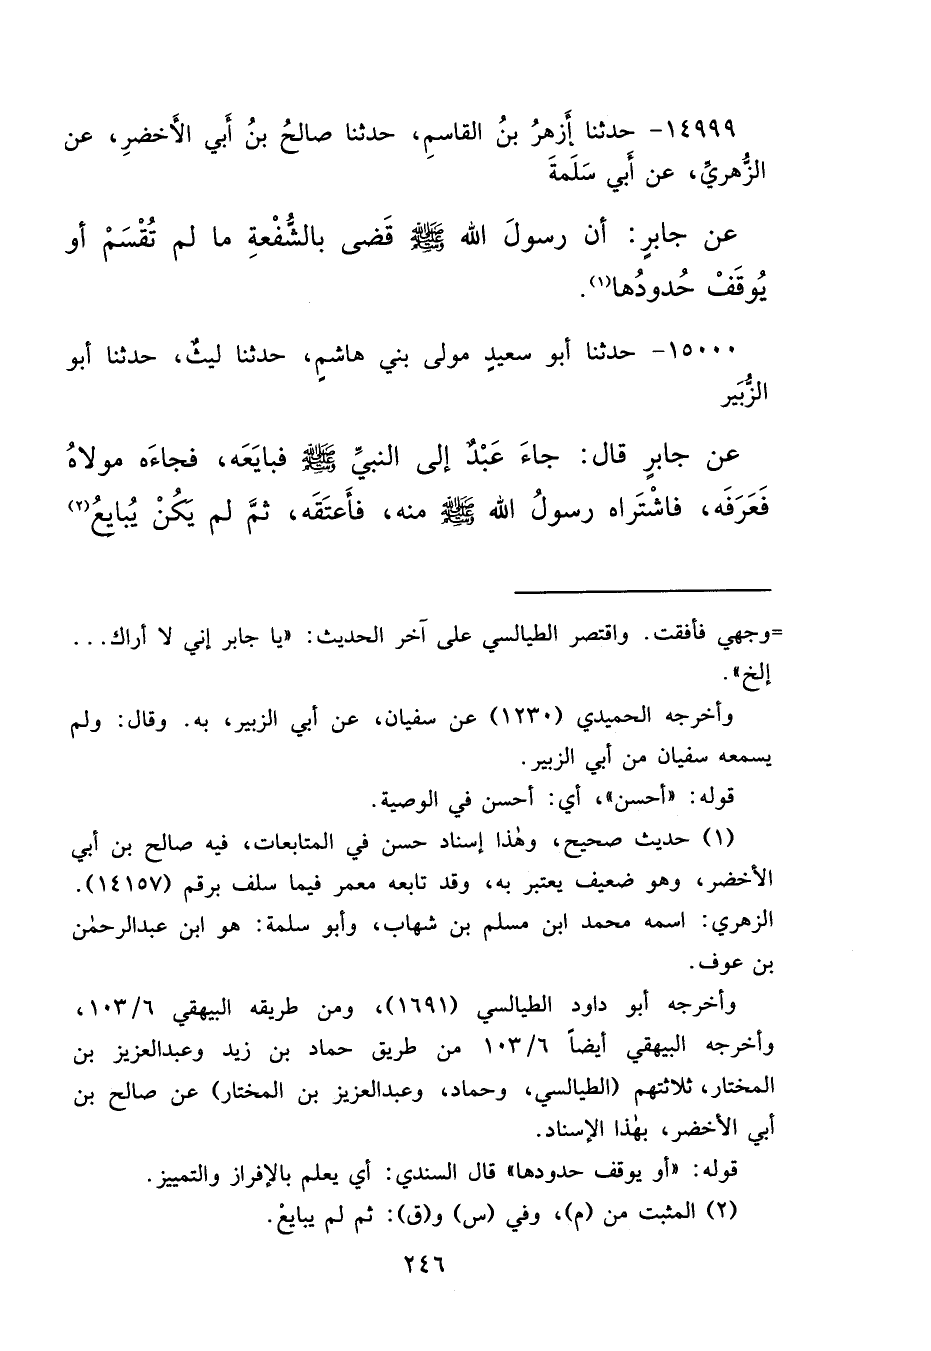 ١٤٩٩٩- حدثنا أَزهرُ بنُ القاسمِ، حدثنا صالحُ بنُ أَبي الأَخضرِ، عن
الزُّهريِّ، عن أَبي سَلَمةَ
عن جابرٍ: أن رسولَ الله ﷺ قَضى بالشُّفْعةِ ما لم تُقْسَمْ أو
يُوقَفْ حُدودُها(١).
١٥٠٠٠- حدثنا أبو سعيدٍ مولى بني هاشمٍ، حدثنا ليثٌ، حدثنا أبو
الزُّبَير
عن جابرٍ قال: جاءَ عَبْدٌ إلى النبيِّ ﷺ فبايَعَه، فجاءَه مولاهُ
فَعَرَفَه، فاشْتَراه رسولُ الله ﷺ منه، فأَعتَقَه، ثمَّ لم يَكُنْ يُبايعُ(٢)
=وجهي فأفقت. واقتصر الطيالسي على آخر الحديث: «يا جابر إني لا أراك...
إلخ».
وأخرجه الحميدي (١٢٣٠) عن سفيان، عن أبي الزبير، به. وقال: ولم
يسمعه سفيان من أبي الزبير.
قوله: «أحسن»، أي: أحسن في الوصية.
(١) حديث صحيح، وهٰذا إسناد حسن في المتابعات، فيه صالح بن أبي
الأخضر، وهو ضعيف يعتبر به، وقد تابعه معمر فيما سلف برقم (١٤١٥٧).
الزهري: اسمه محمد ابن مسلم بن شهاب، وأبو سلمة: هو ابن عبدالرحمٰن
بن عوف.
وأخرجه أبو داود الطيالسي (١٦٩١)، ومن طريقه البيهقي ١٠٣/٦،
وأخرجه البيهقي أيضاً ١٠٣/٦ من طريق حماد بن زيد وعبدالعزيز بن
المختار، ثلاثتهم (الطيالسي، وحماد، وعبدالعزيز بن المختار) عن صالح بن
أبي الأخضر، بهٰذا الإسناد.
قوله: «أو يوقف حدودها» قال السندي: أي يعلم بالإفراز والتمييز.
(٢) المثبت من (م)، وفي (س) و(ق): ثم لم يبايعْ.
٢٤٦